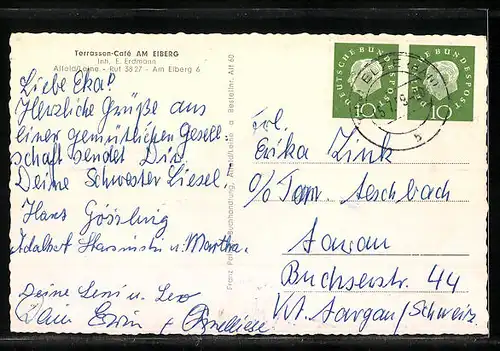 Terrassen-Café AM EIBERG
Inh. E. Erdmann
Alfeld/Leine - Ruf 3827 - Am Eiberg 6
Liebe Eka!
Herzliche Grüße aus
einer gemütlichen Gesell-
schaft sendet Dir
Deine Schwester Liesel,
Hans
Adalbert u. Martha.
Deine Leni u. Leo
Erwin +
Franz Buchhandlung, Alfeld/Leine
Bestellnr. Alf 60
DEUTSCHE BUNDESPOST
10
DEUTSCHE BUNDESPOST
10
Frl.
Erika Zink
c/o Fam. Aeschbach
Aarau
Buchserstr. 44
Kt. Aargau/Schweiz.